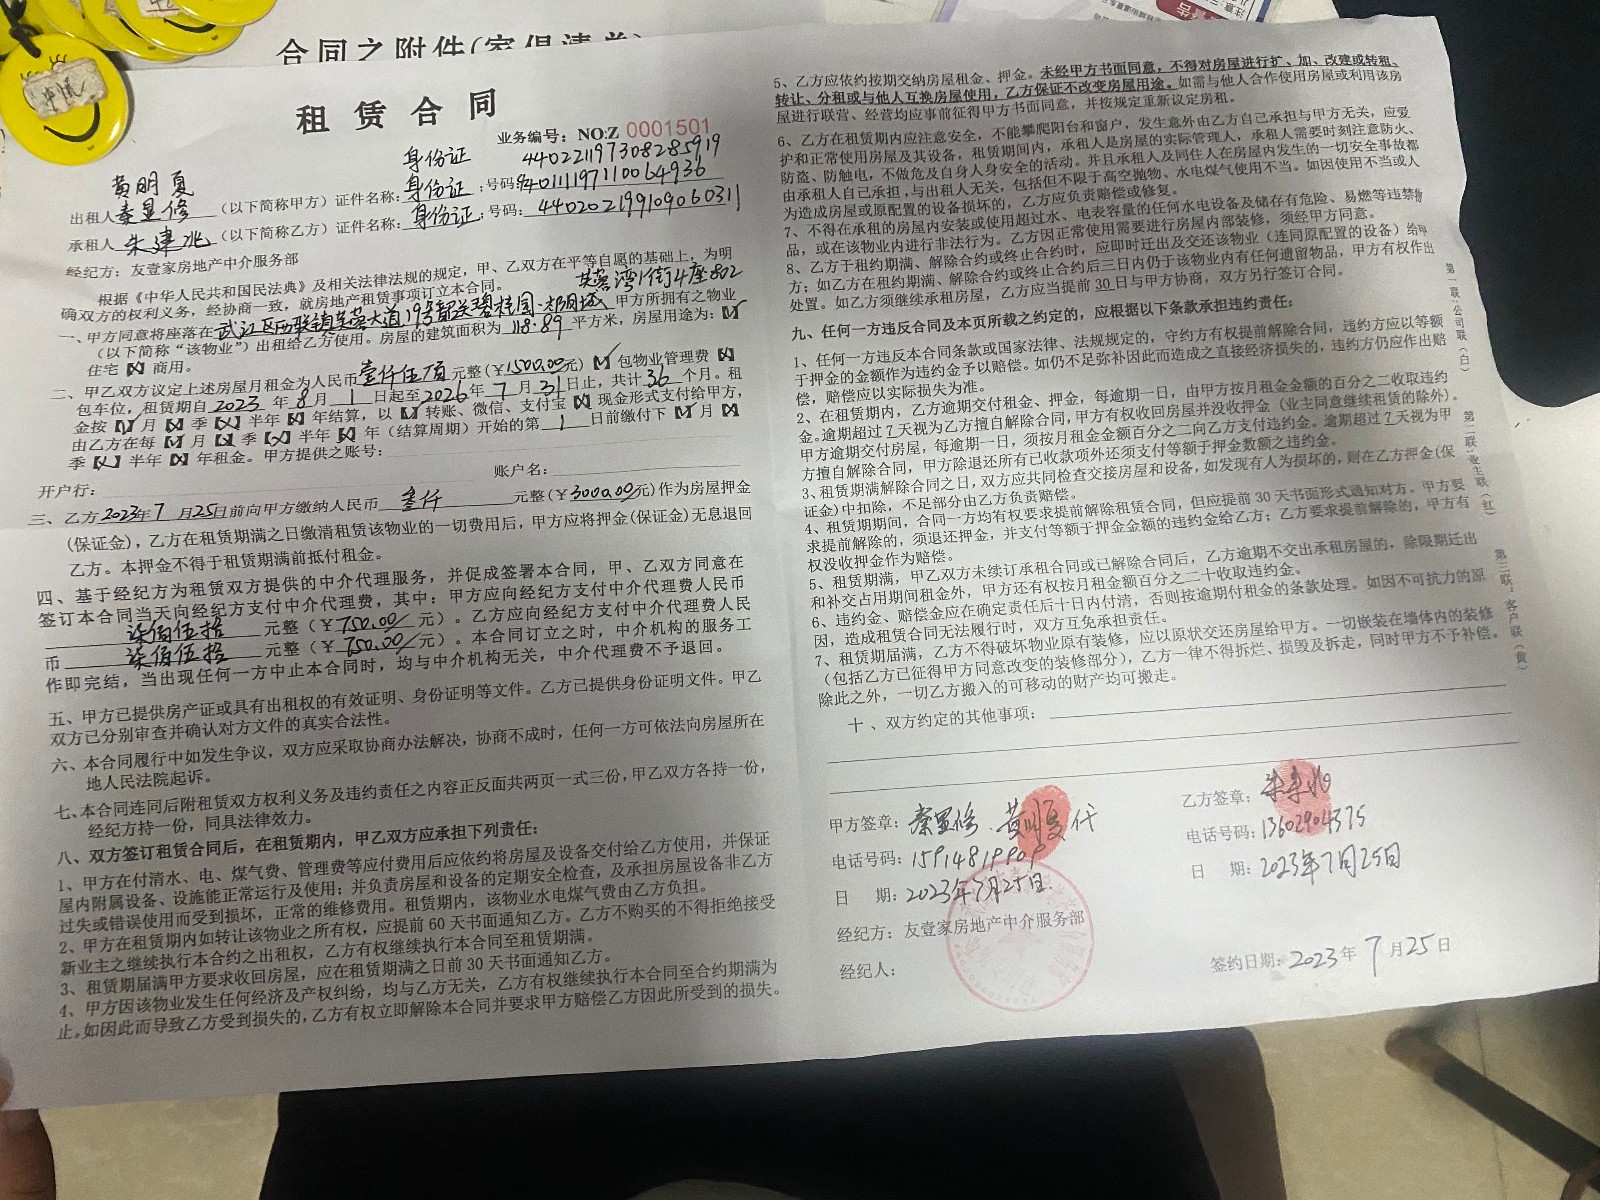 合同之附件(家俱清单)
租赁合同
业务编号：NO:Z 0001501
身份证 440221197308285919
黄明夏
出租人秦显修（以下简称甲方）证件名称：身份证：号码：440111197110064936
承租人 朱建兆（以下简称乙方）证件名称：身份证：号码：440202199109060311
经纪方：友壹家房地产中介服务部
根据《中华人民共和国民法典》及相关法律法规的规定，甲、乙双方在平等自愿的基础上，为明
确双方的权利义务，经协商一致，就房地产租赁事项订立本合同。
芙蓉湾1街4座802
一、甲方同意将座落在武江区西联镇芙蓉大道19号韶关碧桂园·郡朗城 甲方所拥有之物业
（以下简称“该物业”）出租给乙方使用。房屋的建筑面积为 118.89 平方米，房屋用途为：【✓】
住宅【×】商用。
二、甲乙双方议定上述房屋月租金为人民币壹仟伍佰元整(￥1500.00元)【✓】包物业管理费【×】
包车位，租赁期自 2023 年 8 月 1 日起至2026年 7 月 31日止，共计 36 个月。租
金按【✓】月【×】季【×】半年【×】年结算，以【✓】转账、微信、支付宝【×】现金形式支付给甲方，
由乙方在每【✓】月【×】季【×】半年【×】年（结算周期）开始的第 1 日前缴付下【✓】月【×】
季【×】半年【×】年租金。甲方提供之账号：
开户行： 账户名：
三、乙方2023年7月25日前向甲方缴纳人民币 叁仟 元整(￥3000.00元)作为房屋押金
(保证金)，乙方在租赁期满之日缴清租赁该物业的一切费用后，甲方应将押金(保证金)无息退回
乙方。本押金不得于租赁期满前抵付租金。
四、基于经纪方为租赁双方提供的中介代理服务，并促成签署本合同，甲、乙双方同意在
签订本合同当天向经纪方支付中介代理费，其中：甲方应向经纪方支付中介代理费人民币
柒佰伍拾 元整（￥750.00/元）。乙方应向经纪方支付中介代理费人民
币 柒佰伍拾 元整（￥750.00/元）。本合同订立之时，中介机构的服务工
作即完结，当出现任何一方中止本合同时，均与中介机构无关，中介代理费不予退回。
五、甲方已提供房产证或具有出租权的有效证明、身份证明等文件。乙方已提供身份证明文件。甲乙
双方已分别审查并确认对方文件的真实合法性。
六、本合同履行中如发生争议，双方应采取协商办法解决，协商不成时，任何一方可依法向房屋所在
地人民法院起诉。
七、本合同连同后附租赁双方权利义务及违约责任之内容正反面共两页一式三份，甲乙双方各持一份，
经纪方持一份，同具法律效力。
八、双方签订租赁合同后，在租赁期内，甲乙双方应承担下列责任：
1、甲方在付清水、电、煤气费、管理费等应付费用后应依约将房屋及设备交付给乙方使用，并保证
屋内附属设备、设施能正常运行及使用；并负责房屋和设备的定期安全检查，及承担房屋设备非乙方
过失或错误使用而受到损坏，正常的维修费用。租赁期内，该物业水电煤气费由乙方负担。
2、甲方在租赁期内如转让该物业之所有权，应提前60天书面通知乙方。乙方不购买的不得拒绝接受
新业主之继续执行本合约之出租权，乙方有权继续执行本合同至租赁期满。
3、租赁期届满甲方要求收回房屋，应在租赁期满之日前30天书面通知乙方。
4、甲方因该物业发生任何经济及产权纠纷，均与乙方无关，乙方有权继续执行本合同至合约期满为
止。如因此而导致乙方受到损失的，乙方有权立即解除本合同并要求甲方赔偿乙方因此所受到的损失。
5、乙方应依约按期交纳房屋租金、押金。未经甲方书面同意，不得对房屋进行扩、加、改建或转租、
转让、分租或与他人互换房屋使用，乙方保证不改变房屋用途。如需与他人合作使用房屋或利用该房
屋进行联营、经营均应事前征得甲方书面同意，并按规定重新议定房租。
6、乙方在租赁期内应注意安全，不能攀爬阳台和窗户，发生意外由乙方自己承担与甲方无关，应爱
护和正常使用房屋及其设备，租赁期间内，承租人是房屋的实际管理人，承租人需要时刻注意防火、
防盗、防触电，不做危及自身人身安全的活动。并且承租人及同住人在房屋内发生的一切安全事故都
由承租人自己承担，与出租人无关，包括但不限于高空抛物、水电煤气使用不当。如因使用不当或人
为造成房屋或原配置的设备损坏的，乙方应负责赔偿或修复。
7、不得在承租的房屋内安装或使用超过水、电表容量的任何水电设备及储存有危险、易燃等违禁物
品，或在该物业内进行非法行为。乙方因正常使用需要进行房屋内部装修，须经甲方同意。
8、乙方于租约期满、解除合约或终止合约时，应即时迁出及交还该物业（连同原配置的设备）给甲
方；如乙方在租约期满、解除合约或终止合约后三日内仍于该物业内有任何遗留物品，甲方有权作出
处置。如乙方须继续承租房屋，乙方应当提前30日与甲方协商，双方另行签订合同。
九、任何一方违反合同及本页所载之约定的，应根据以下条款承担违约责任：
1、任何一方违反本合同条款或国家法律、法规规定的，守约方有权提前解除合同，违约方应以等额
于押金的金额作为违约金予以赔偿。如仍不足弥补因此而造成之直接经济损失的，违约方仍应作出赔
偿，赔偿应以实际损失为准。
2、在租赁期内，乙方逾期交付租金、押金，每逾期一日，由甲方按月租金金额的百分之二收取违约
金。逾期超过7天视为乙方擅自解除合同，甲方有权收回房屋并没收押金（业主同意继续租赁的除外）。
甲方逾期交付房屋，每逾期一日，须按月租金金额百分之二向乙方支付违约金。逾期超过7天视为甲
方擅自解除合同，甲方除退还所有已收款项外还须支付等额于押金数额之违约金。
3、租赁期满解除合同之日，双方应共同检查交接房屋和设备，如发现有人为损坏的，则在乙方押金(保
证金)中扣除，不足部分由乙方负责赔偿。
4、租赁期期间，合同一方均有权要求提前解除租赁合同，但应提前30天书面形式通知对方。甲方要
求提前解除的，须退还押金，并支付等额于押金金额的违约金给乙方；乙方要求提前解除的，甲方有
权没收押金作为赔偿。
5、租赁期满，甲乙双方未续订承租合同或已解除合同后，乙方逾期不交出承租房屋的，除限期迁出
和补交占用期间租金外，甲方还有权按月租金额百分之二十收取违约金。
6、违约金、赔偿金应在确定责任后十日内付清，否则按逾期付租金的条款处理。如因不可抗力的原
因，造成租赁合同无法履行时，双方互免承担责任。
7、租赁期届满，乙方不得破坏物业原有装修，应以原状交还房屋给甲方。一切嵌装在墙体内的装修
（包括乙方已征得甲方同意改变的装修部分），乙方一律不得拆烂、损毁及拆走，同时甲方不予补偿。
除此之外，一切乙方搬入的可移动的财产均可搬走。
十、双方约定的其他事项：
甲方签章：秦显修、黄明夏代
电话号码：15914819909
日 期：2023年7月25日
经纪方：友壹家房地产中介服务部
经纪人：
乙方签章：朱建兆
电话号码：13602904375
日 期：2023年7月25日
签约日期：2023年 7 月25日
第一联：公司联（白）
第二联：业主联（红）
第三联：客户联（黄）